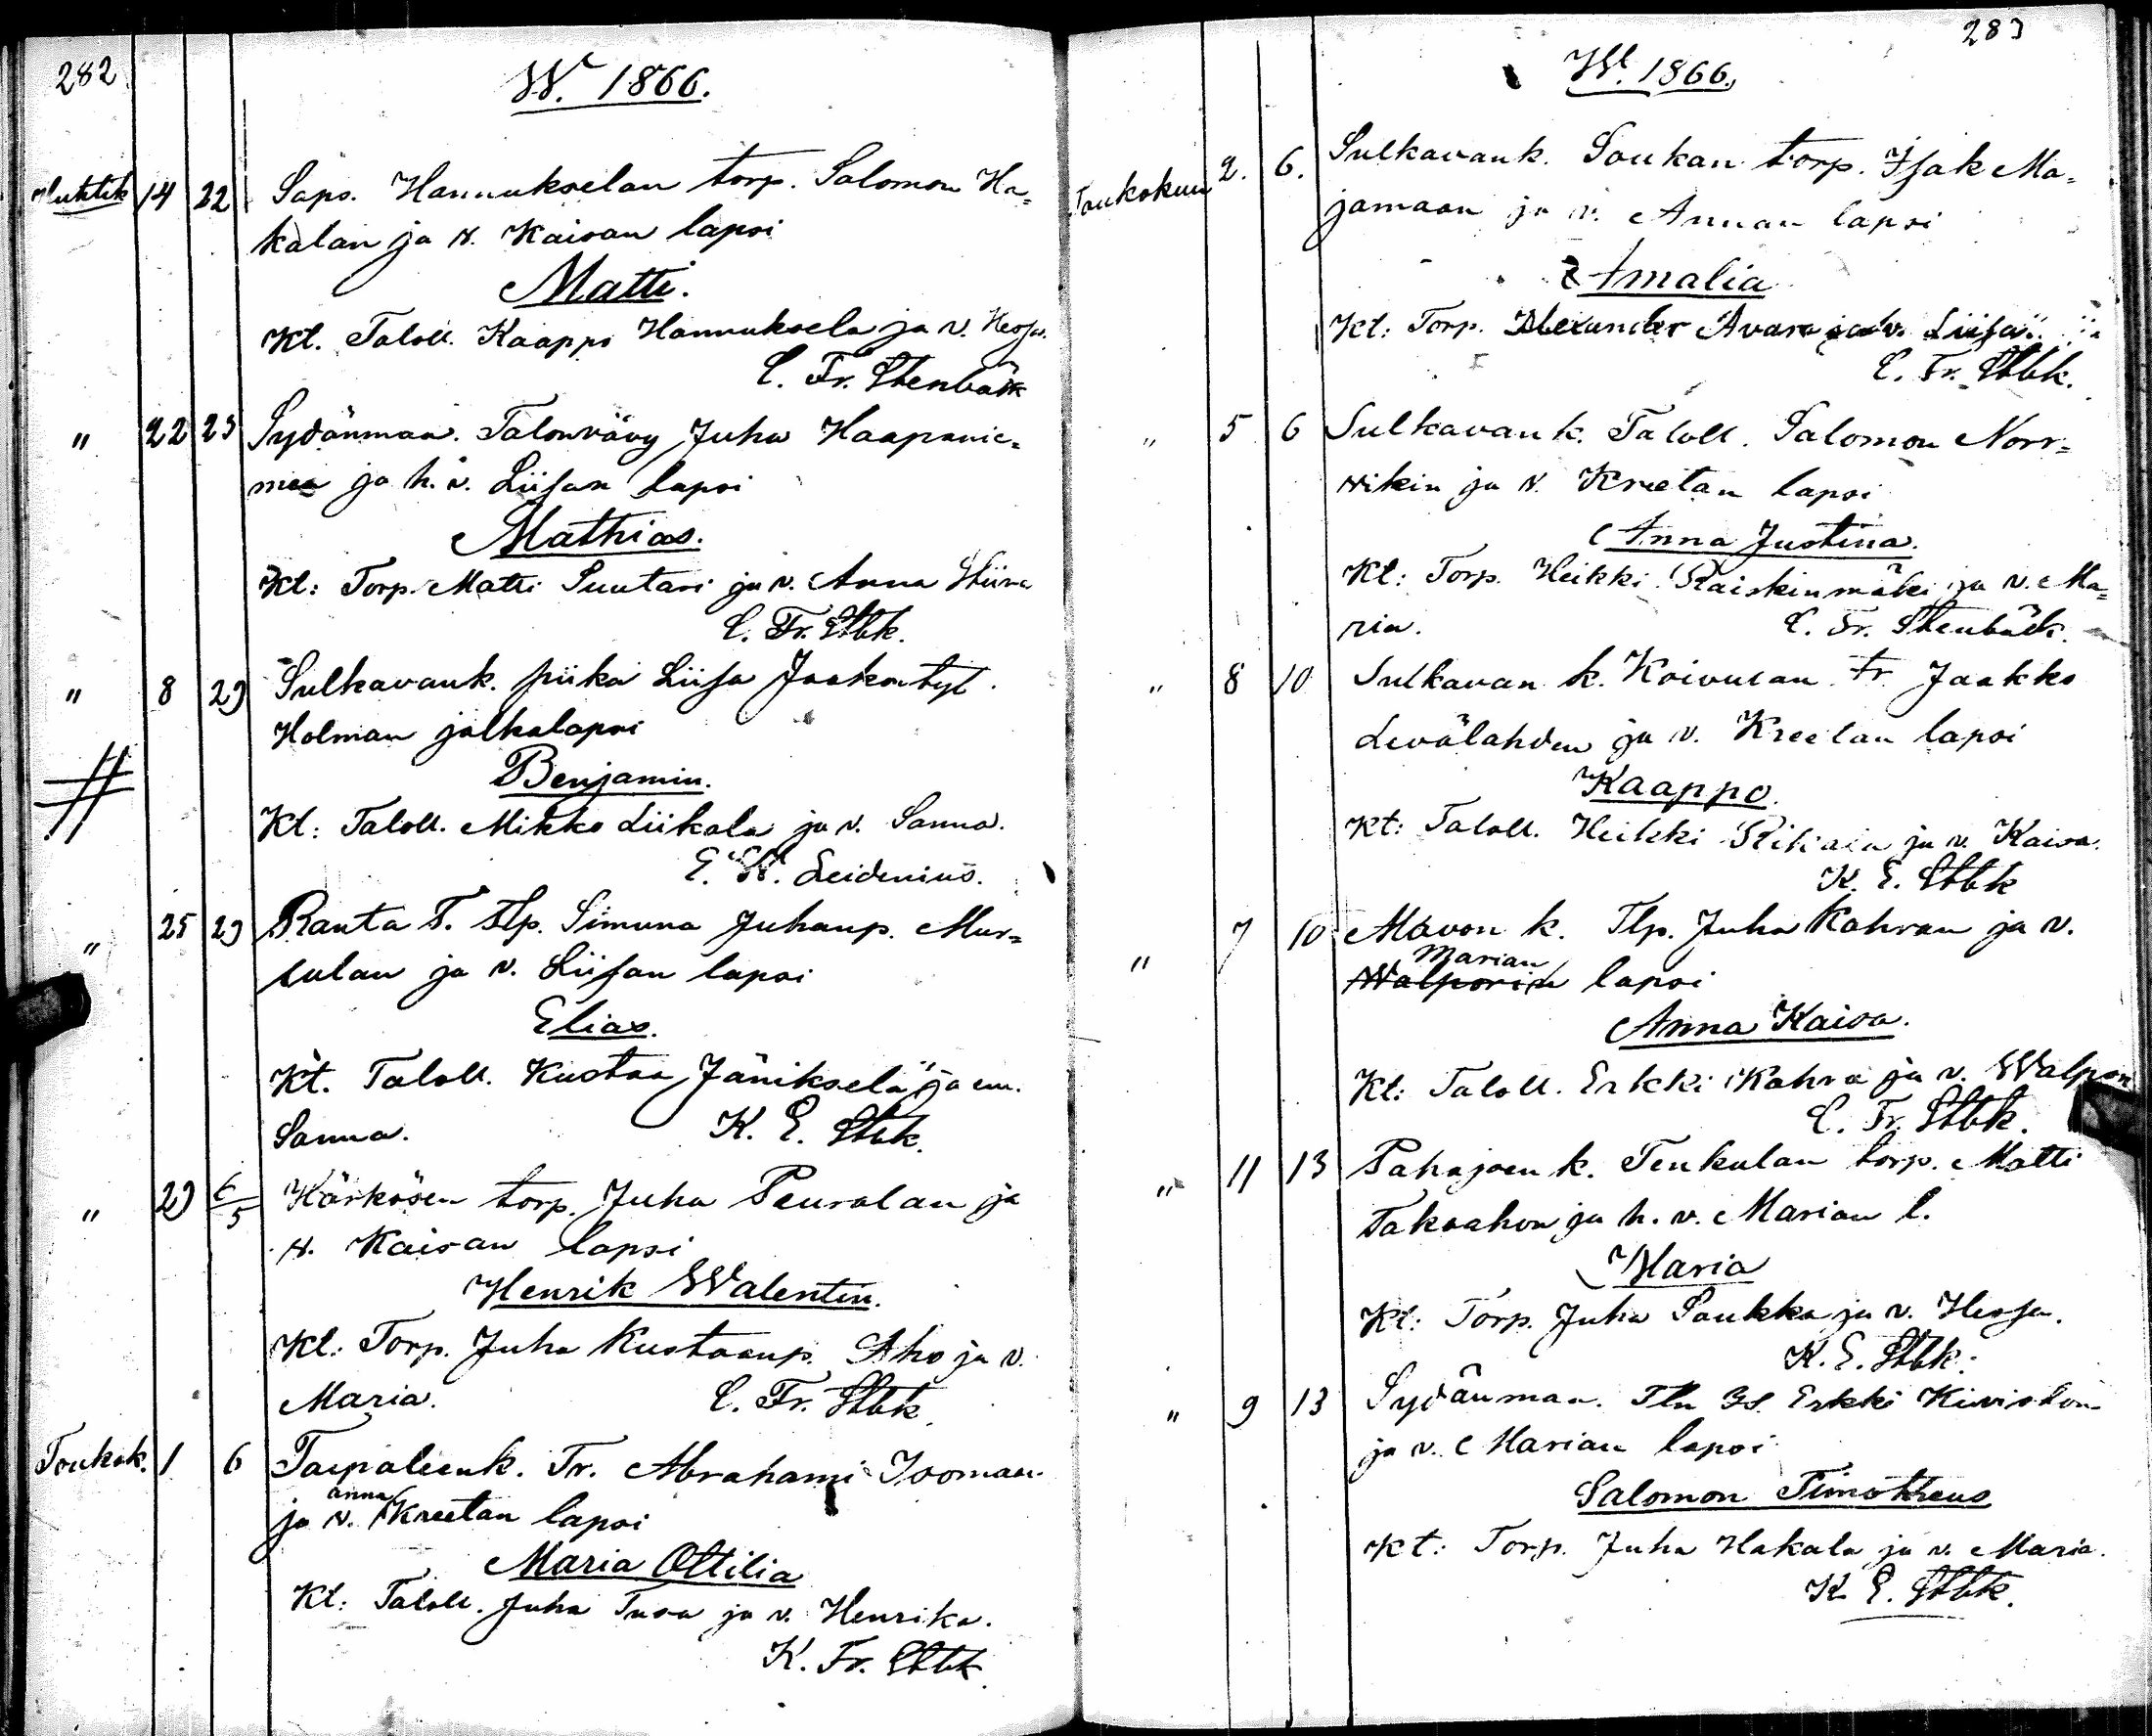 282
W. 1866.
Huhtik 14 22 Saps. Hannukselan torp. Salomon Ha=
kalan ja v. Kaisan lapsi
Matti.
Kt. Taloll. Kaappo Hannuksela ja v. Hessa.
C. Fr. Stenbäck
" 22 23 Sydänmaa. Talonvävy Juha Haapanie=
men ja h. v. Liisan lapsi
Mathias.
Kt: Torp. Matti Suutari ja v. Anna Stiina
C. Fr. Stbk.
" 8 29 Sulkavank. piika Liisa Jaakontyt.
Holman jalkalapsi
Benjamin.
Kt: Taloll. Mikko Liikala ja v. Sanna.
E. W. Leidenius.
" 25 29 Ranta T. tlp. Simuna Juhanp. Mur=
tulan ja v. Liisan lapsi
Elias.
Kt. Taloll. Kustaa Jänikselä ja em.
Sanna. K. E. Stbk.
" 29 6/5 Kärkösen torp. Juha Peuralan ja
v. Kaisan lapsi
Henrik Walentin.
Kt: Torp. Juha Kustaanp. Aho ja v.
Maria. C. Fr. Stbk.
Toukok. 1 6 Taipaleenk. Tr. Abrahami Isomaan
ja v. Anna Kreetan lapsi
Maria Ottilia
Kt: Taloll. Juha Tusa ja v. Henrika.
K. Fr. Stbk.
283
W. 1866.
Toukokuu 2. 6. Sulkavank. Soukan torp. Isak Ma=
jamaan ja v. Annan lapsi
Amalia
Kt: Torp. Alexander Avara ja v. Liisa
C. Fr. Stbk.
" 5 6 Sulkavank. Taloll. Salomon Norr=
vikin ja v. Kreetan lapsi
Anna Justina.
Kt: Torp. Heikki Raiskinmäki ja v. Ma=
ria. C. Fr. Stenbäck.
" 8 10 Sulkavan k. Koivusan tr. Jaakko
Levälahden ja v. Kreetan lapsi
Kaappo.
Kt: Taloll. Heikki ja v. Kaisa.
K. E. Stbk
" 7 10 Mavon k. Tlp. Juha Kahran ja v.
Marian
Walporin lapsi
Anna Kaisa.
Kt: Taloll. Erkki Kahra ja v. Walpori
C. Fr. Stbk.
" 11 13 Pahajoen k. Tenkulan torp. Matti
Takaahon ja h. v. Marian l.
Maria
Kt: Torp. Juha Paukka ja v. Hessa.
K. E. Stbk.
" 9 13 Sydänmaa. Tln Is. Erkki Kiviston
ja v. Marian lapsi
Salomon Timotheus
Kt: Torp. Juha Hakala ja v. Maria.
K. E. Stbk.